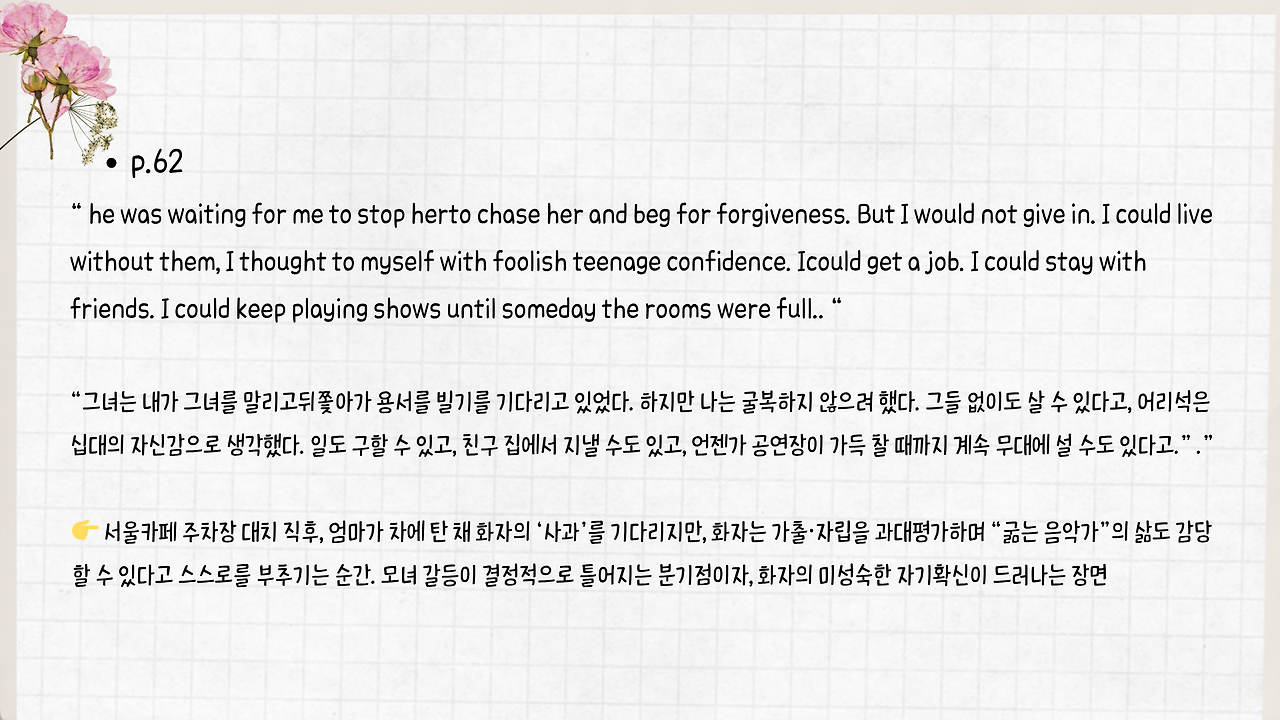 • p.62
“ he was waiting for me to stop herto chase her and beg for forgiveness. But I would not give in. I could live
without them, I thought to myself with foolish teenage confidence. Icould get a job. I could stay with
friends. I could keep playing shows until someday the rooms were full.. “
“그녀는 내가 그녀를 말리고뒤쫓아가 용서를 빌기를 기다리고 있었다. 하지만 나는 굴복하지 않으려 했다. 그들 없이도 살 수 있다고, 어리석은
십대의 자신감으로 생각했다. 일도 구할 수 있고, 친구 집에서 지낼 수도 있고, 언젠가 공연장이 가득 찰 때까지 계속 무대에 설 수도 있다고.” .”
👉 서울카페 주차장 대치 직후, 엄마가 차에 탄 채 화자의 ‘사과’를 기다리지만, 화자는 가출·자립을 과대평가하며 “굶는 음악가”의 삶도 감당
할 수 있다고 스스로를 부추기는 순간. 모녀 갈등이 결정적으로 틀어지는 분기점이자, 화자의 미성숙한 자기확신이 드러나는 장면